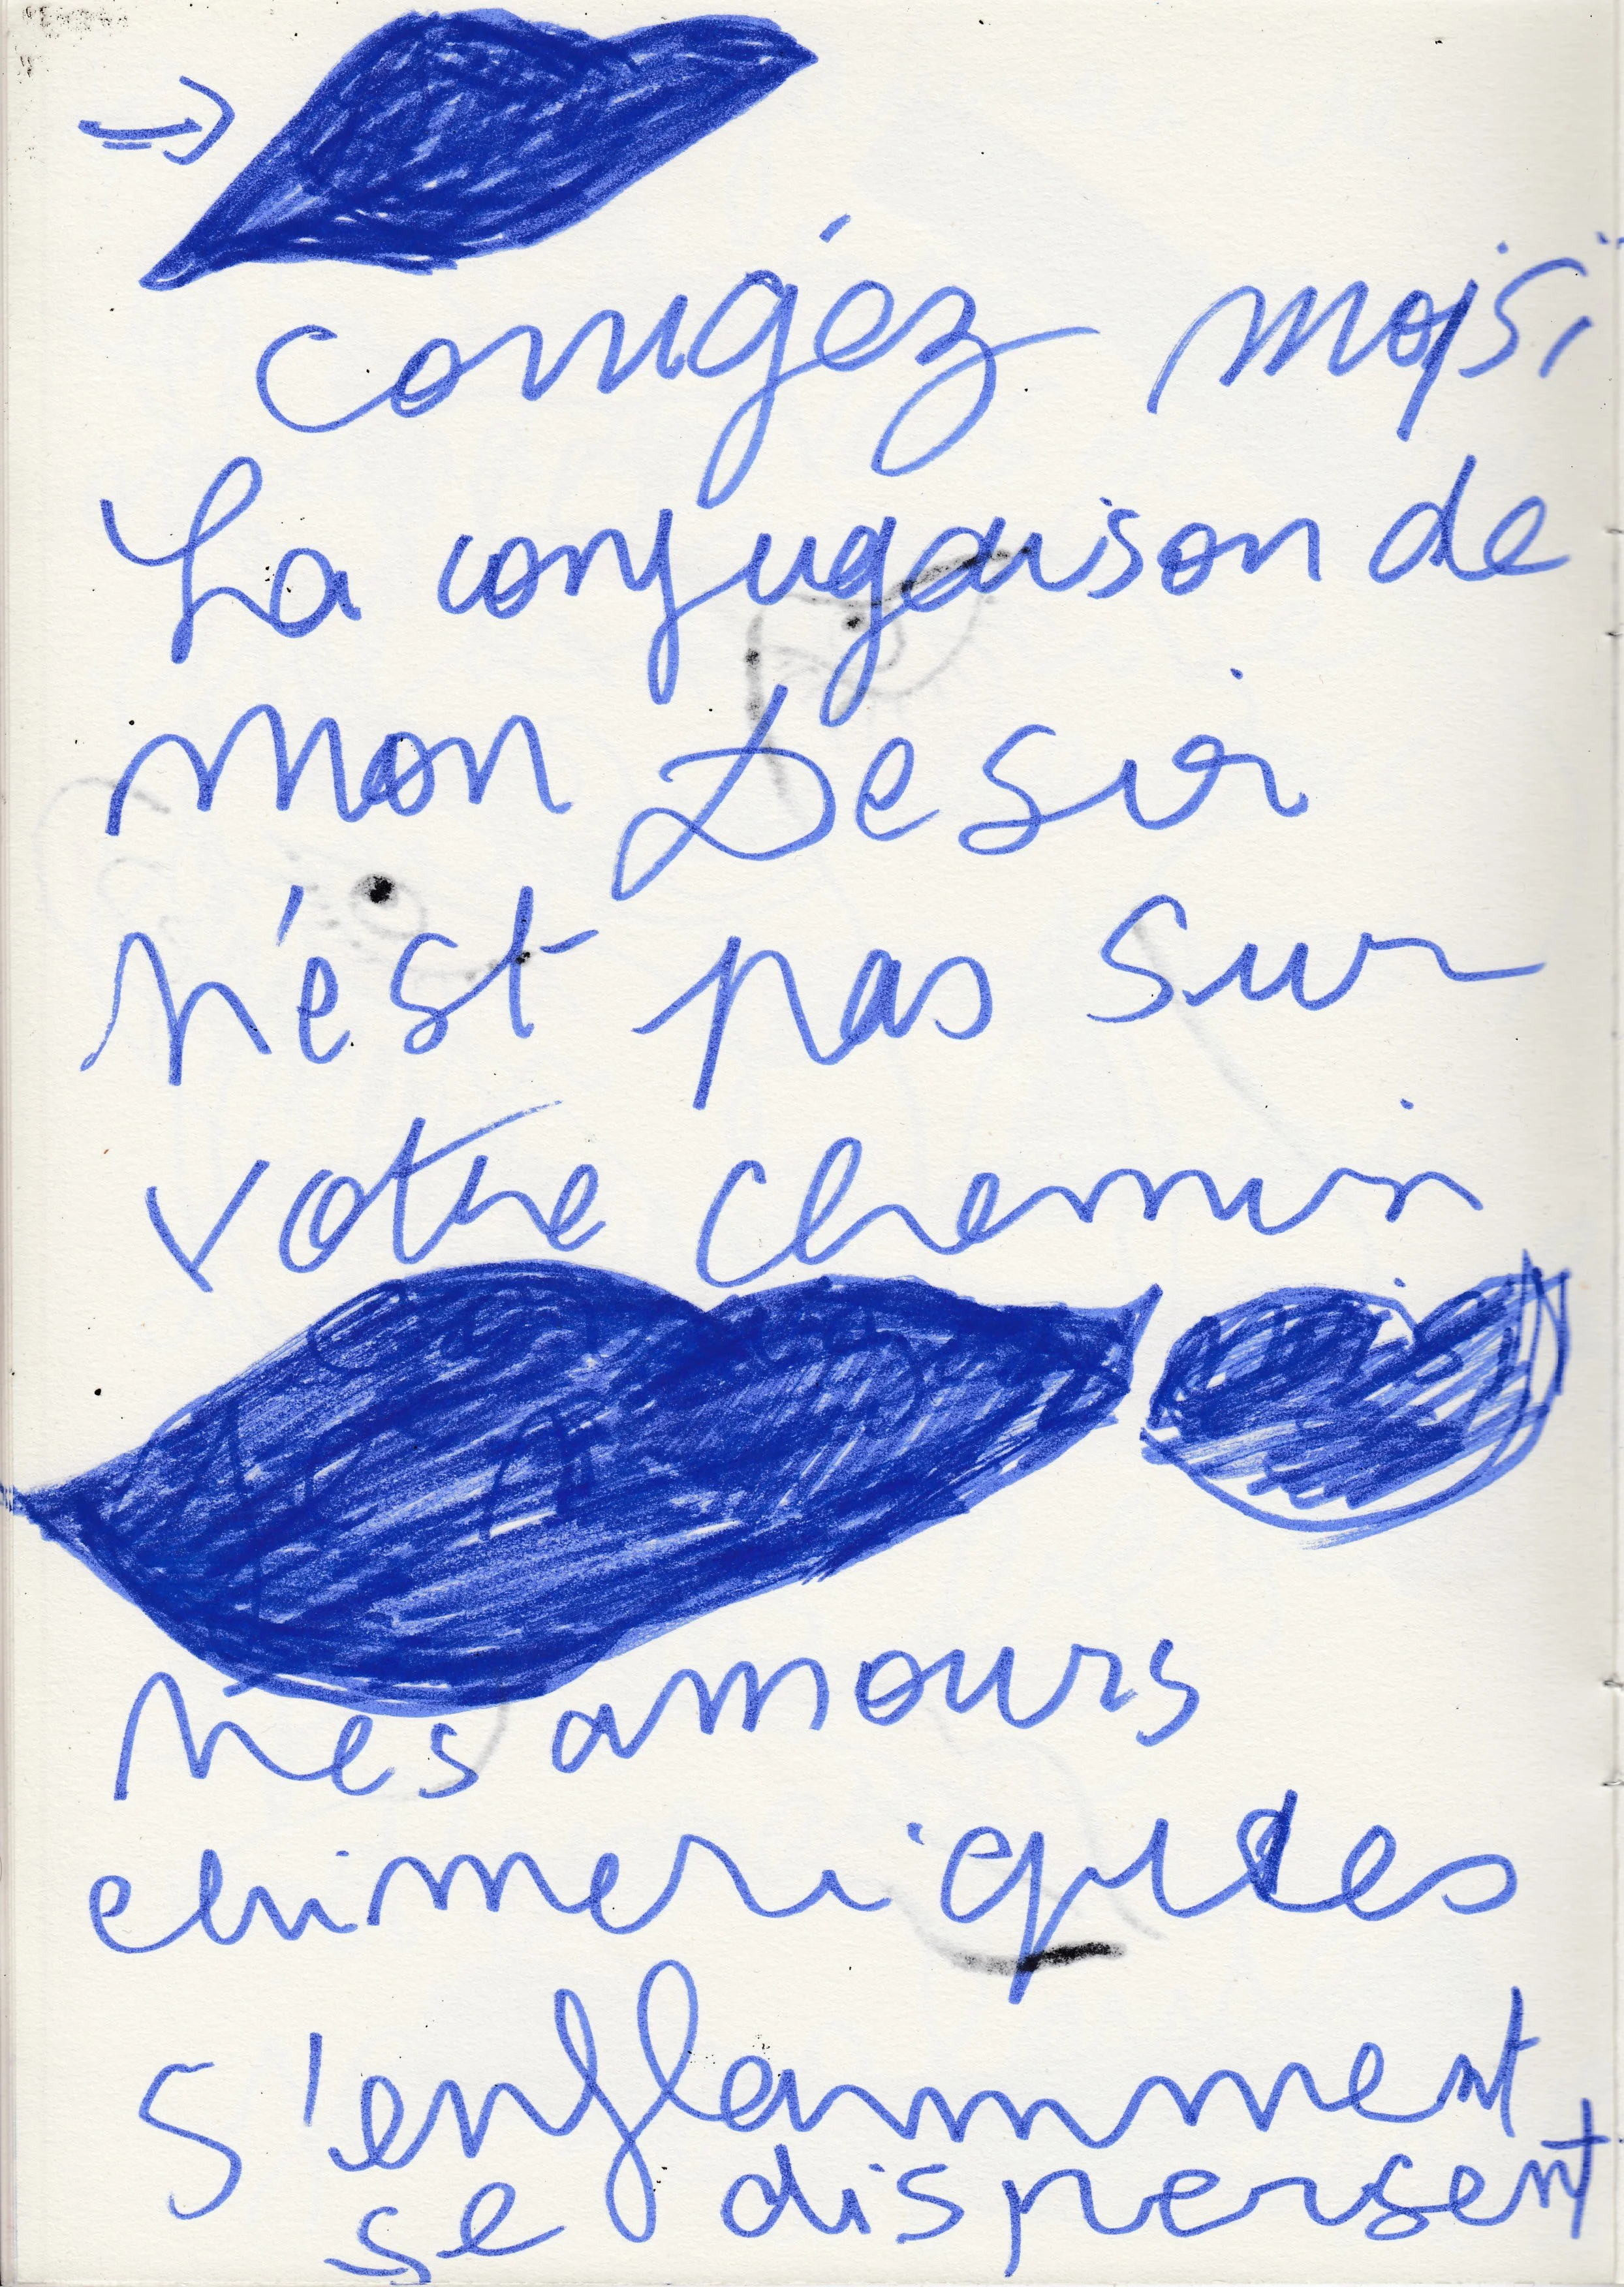 corrigéz moi si
La conjugaison de
mon Desir
n'est pas sur
votre chemin
Mes amours
chimeriques
s'enflamment
se dispersent